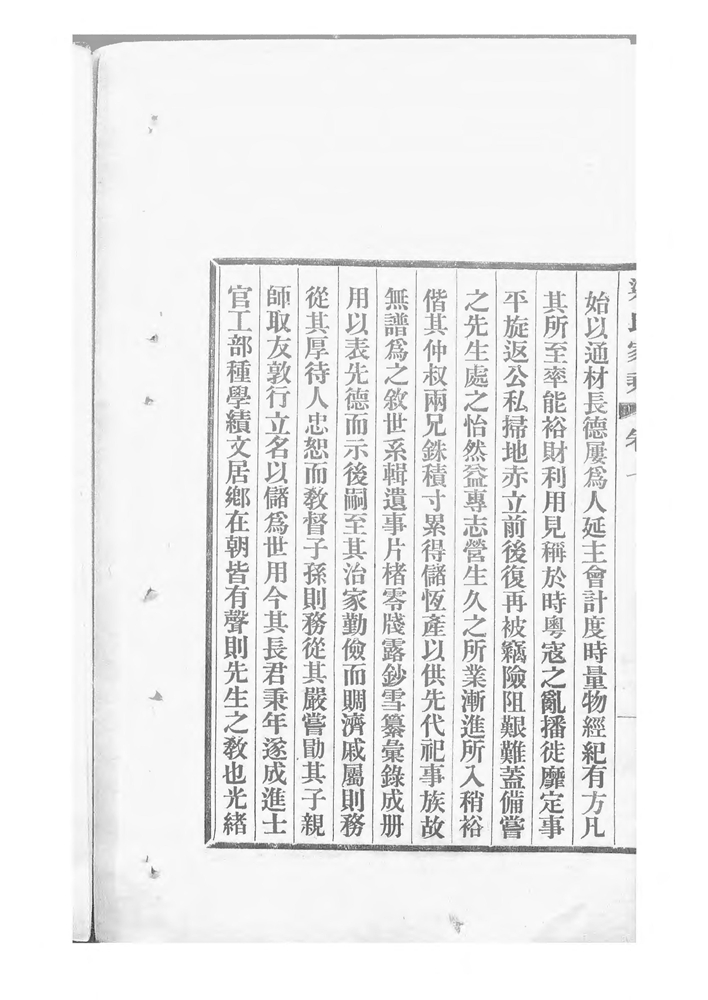 始以通材長德屢爲人延主會計度時量物經紀有方凡
其所至率能裕財利用見稱於時粵寇之亂播徙靡定事
平旋返公私掃地赤立前後復再被竊險阻艱難蓋備嘗
之先生處之怡然益專志營生久之所業漸進所入稍裕
偕其仲叔兩兄銖積寸累得儲恆產以供先代祀事族故
無譜爲之敘世系輯遺事片楮零牋露鈔雪纂彙錄成册
用以表先德而示後嗣至其治家勤儉而賙濟戚屬則務
從其厚待人忠恕而教督子孫則務從其嚴嘗勖其子親
師取友敦行立名以儲爲世用今其長君秉年遂成進士
官工部種學績文居鄉在朝皆有聲則先生之教也光緒